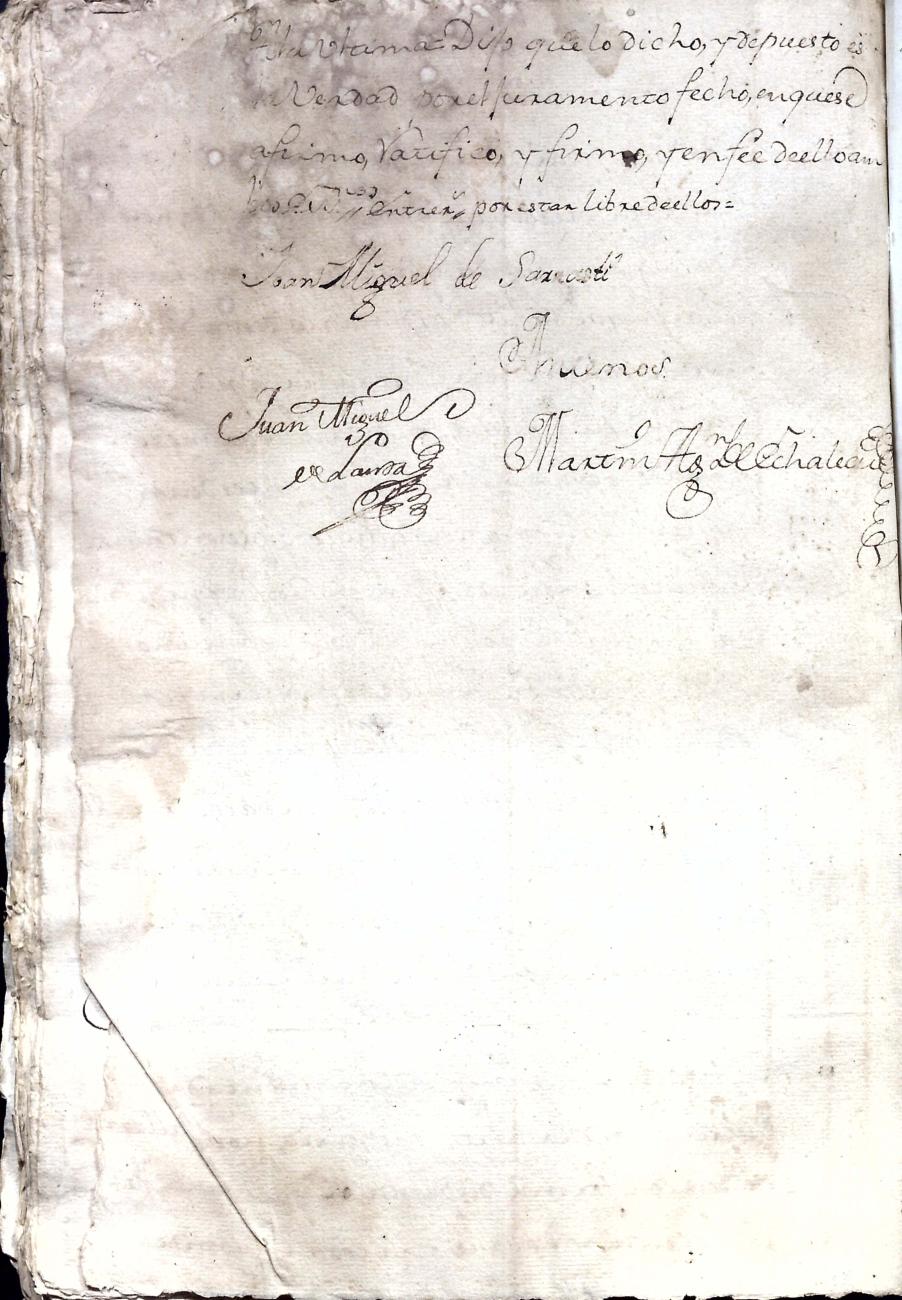 A la Vltima = Dijo que lo dicho, y depuesto es
la Verdad por el juramento fecho, en que se
afirmo, Ratifico, y firmo, y en fee de ello am
por estar libre de ellos =
Joan Miguel de
Antte nos
Juan Miguel
de Landa
Martin de Echalecu